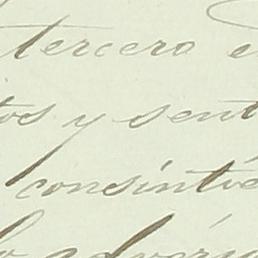 tercero e
tos y sent
consintié